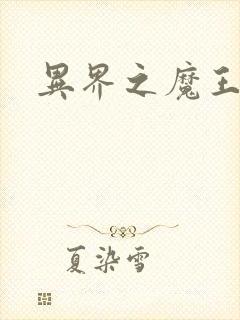 異界之魔王
夏染雪